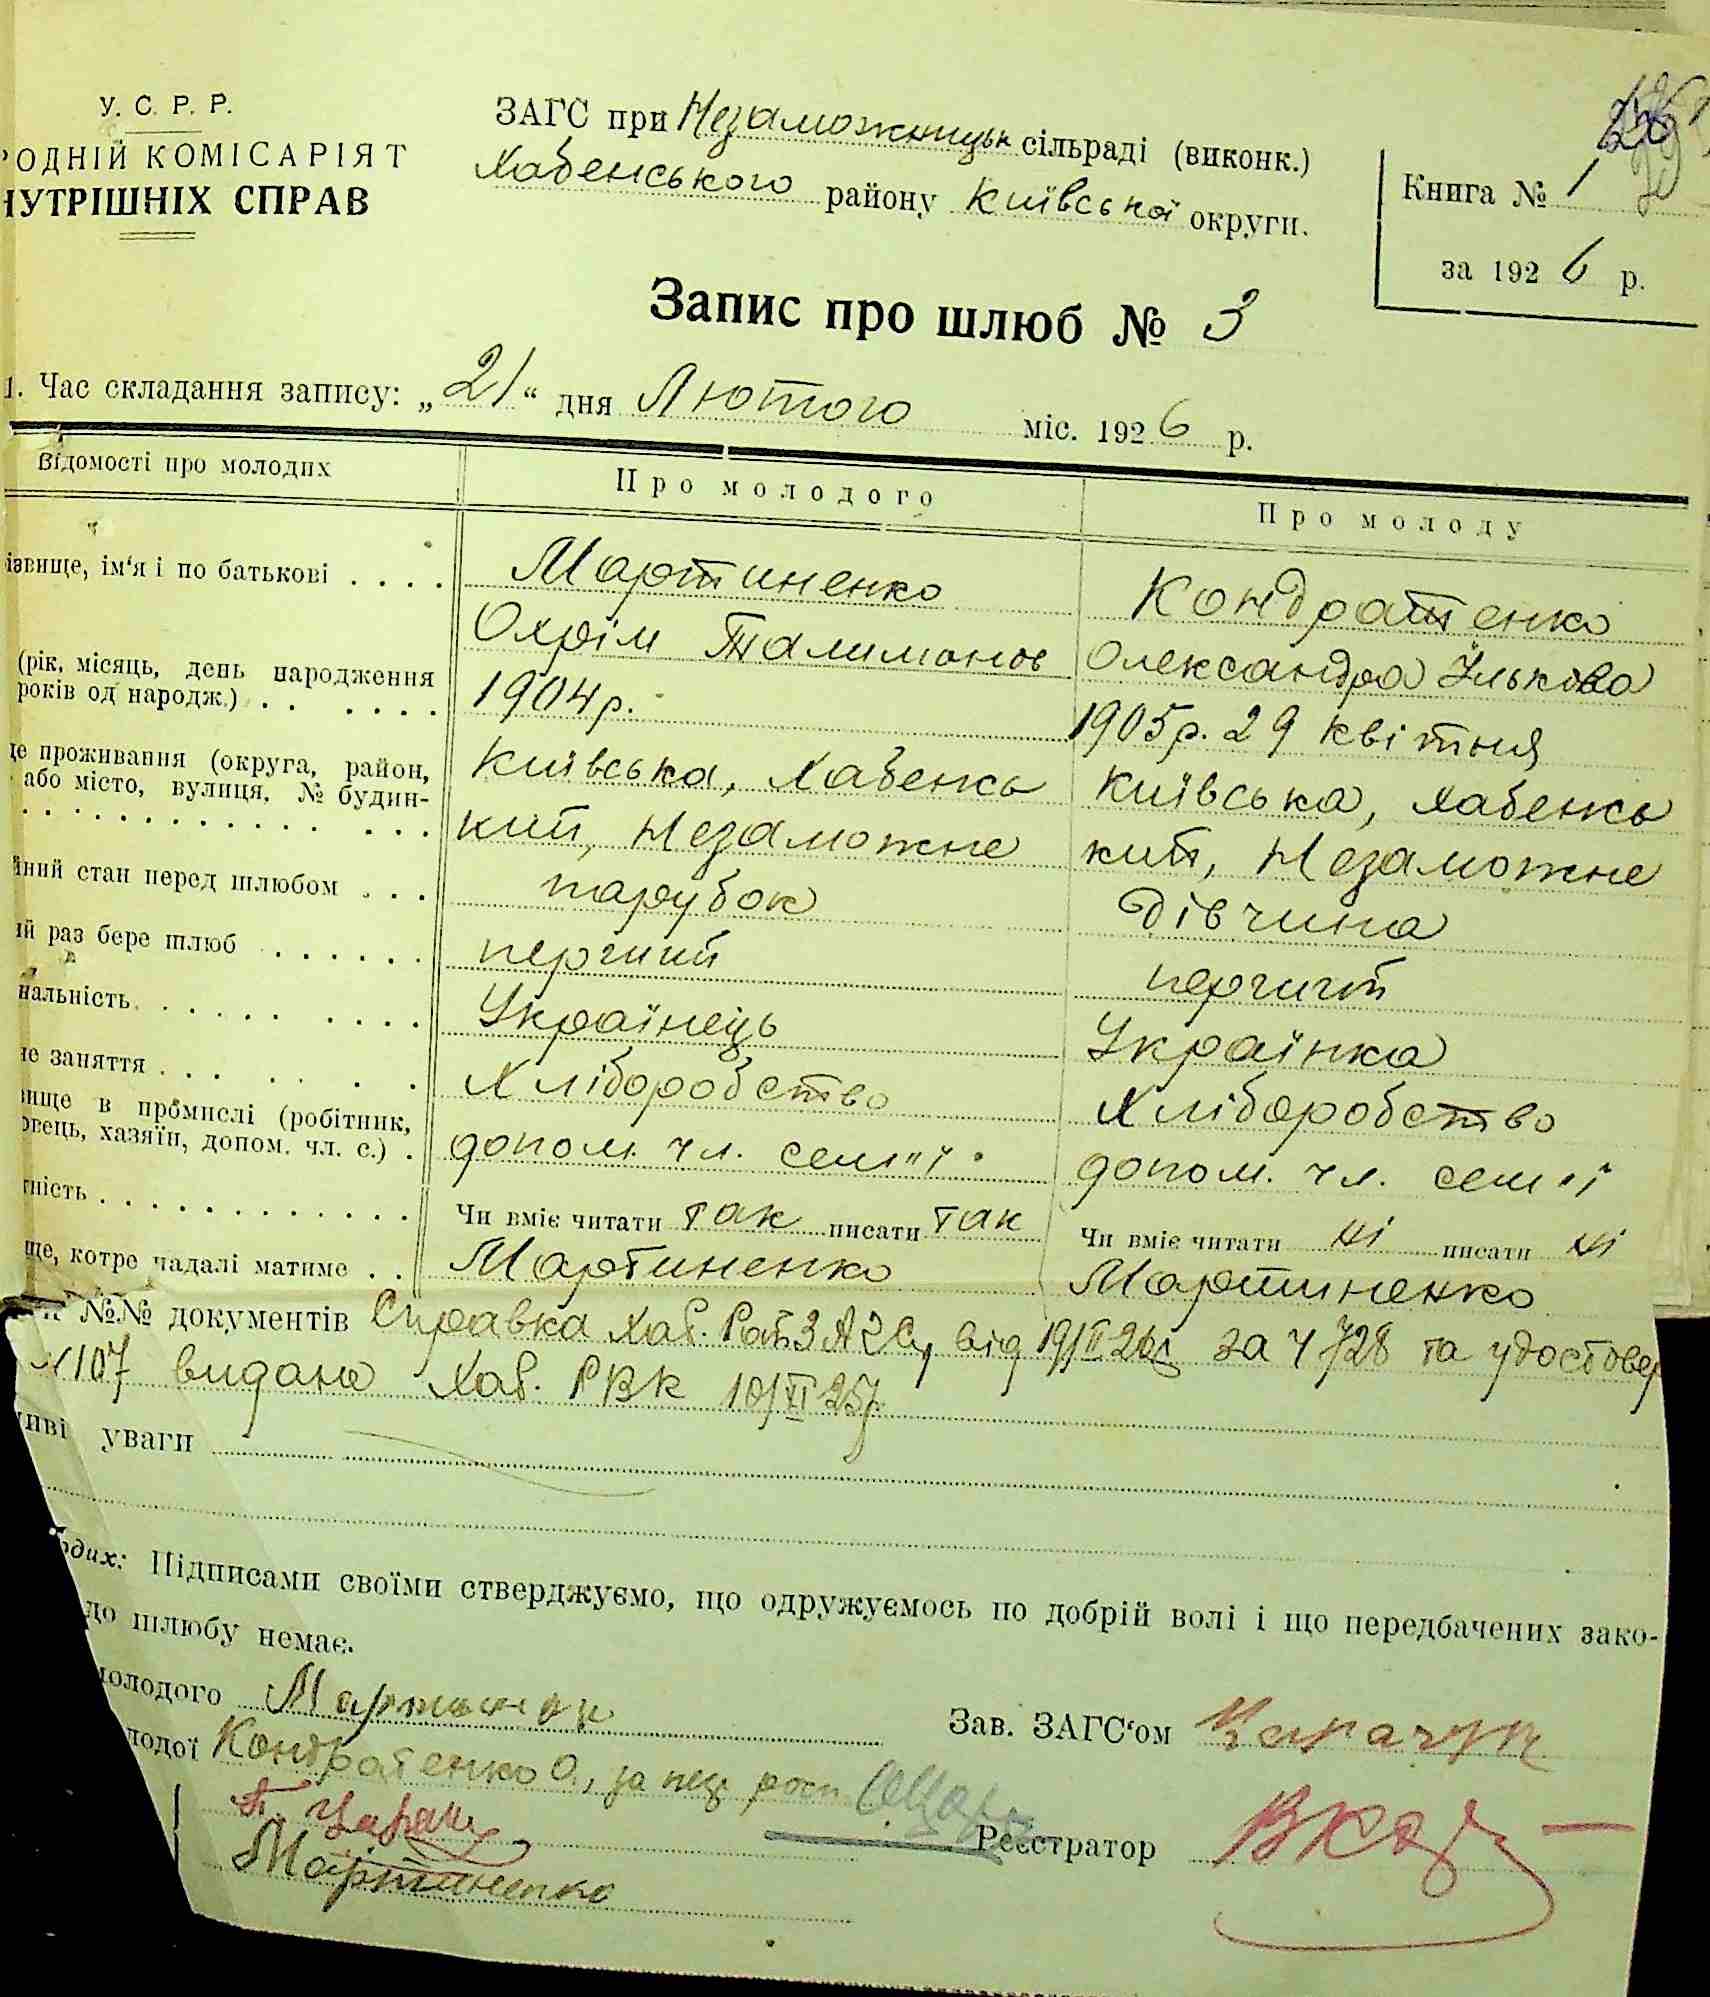 У. С. Р. Р.
РОДНІЙ КОМІСАРІЯТ
НУТРІШНІХ СПРАВ
ЗАГС при Незаможницьк сільраді (виконк.)
Хабенського району Київської округи.
Книга № 1
за 1926 р.
Запис про шлюб № 3
1. Час складання запису: „21“ дня Лютого міс. 1926 р.
Відомості про молодих
Про молодого
Про молоду
ізвище, ім'я і по батькові . . . .
Мартиненко
Охрім Талимонов
Кондратенко
Олександра Ількова
(рік, місяць, день народження
років од народж.) . . . . . .
1904 р.
1905 р. 29 квітня
це проживання (округа, район,
або місто, вулиця, № будин-
Київська, Хабенсь
кий, Незаможне
Київська, Хабенсь
кий, Незаможне
йний стан перед шлюбом . . .
парубок
дівчина
ий раз бере шлюб . . . . . .
перший
перший
нальність . . . . . . . . .
Українець
Українка
не заняття . . . . . . .
Хліборобство
Хліборобство
вище в промислі (робітник,
овець, хазяїн, допом. чл. с.) .
допом. чл. сем'ї
допом. чл. сем'ї
тність . . . . . . . . . . . .
Чи вміє читати так писати так
Чи вміє читати ні писати ні
ще, котре надалі матиме . .
Мартиненко
Мартиненко
№№ документів Справка Хаб. Рай ЗАГСу від 19/II 26 за ч 728 та удостовер
107 видано Хаб. РВК 10/XI 25р.
иві уваги
одих: Підписами своїми стверджуємо, що одружуємось по добрій волі і що передбачених зако-
до шлюбу немає.
молодого Мартинен
Зав. ЗАГС'ом
лодої Кондратенко О., за неї росп
Реєстратор
Мартиненко